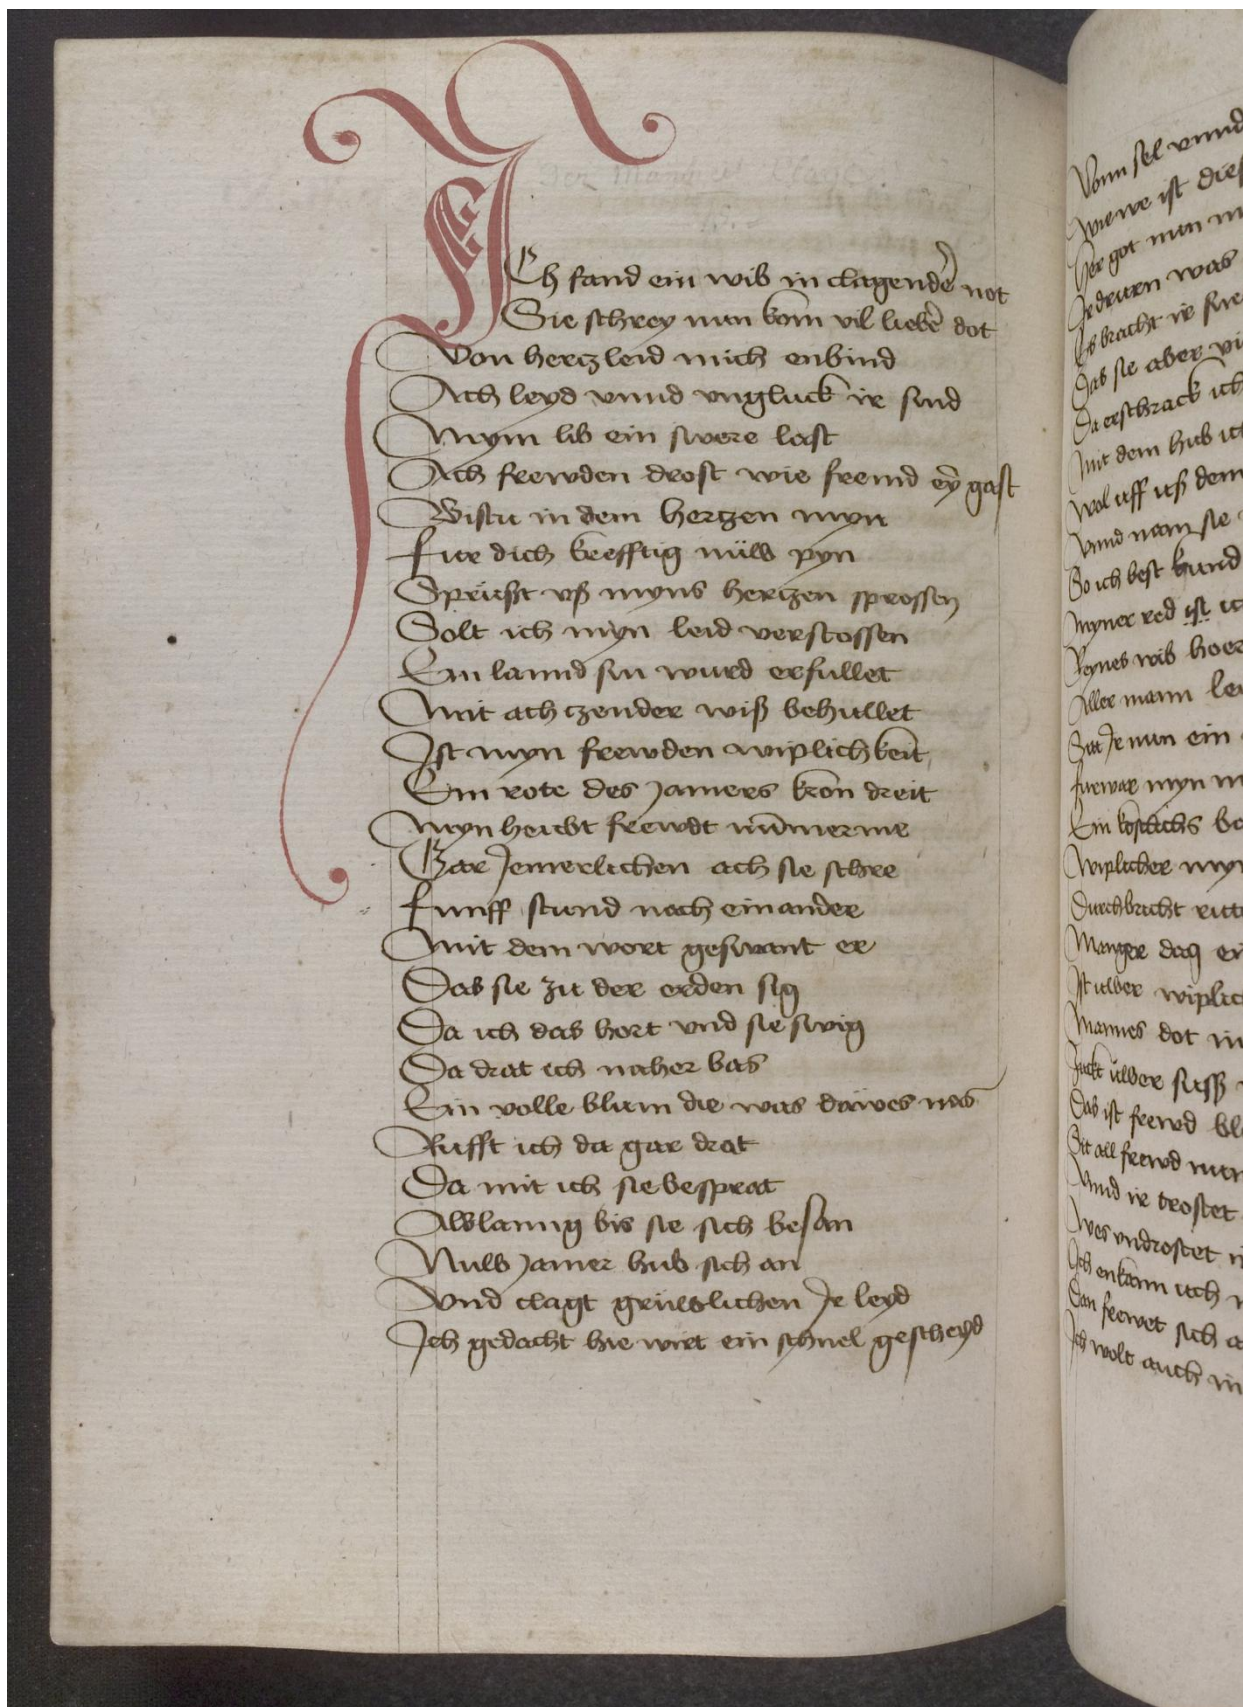 ICh fand ein wib in clagender not
Sie schrey nun kom vil lieber dot
Von hertzleid mich enbind
Ach leyd vnnd vngluck ir sind
Mym lib ein swere last
Ach frewden drost wie fremd ey gast
Bistu in dem hertzen myn
Fur dich krefftig nüw pyn
Sprüßt vß myns hertzen sprossen
Solt ich myn leid verstossen
Ein lannd sin wurd erfullet
Mit achczender wiß behullet
Ist myn frewden wiplichkeit
Ein rote des jamers kron dreit
Myn heubt frewdt nümmerme
Gar Jemerlichen ach sie schre
Funff stund nach einander
Mit dem wort geswant er
Das sie zu der erden sig
Da ich das hort vnd sie swig
Da drat ich naher bas
Ein volle blum die was dawes nas
Rufft ich da gar drat
Da mit ich sie besprat
Alslanng bis sie sich besan
Nuwb jamer hub sich an
Vnd clagt grüwlichen Ir leyd
Ich gedacht hie wirt ein schnel gescheyd
Vonn sel vnnd
Wie we ist
Her got
was
Es bracht ir
Das sie aber
Da erschrack ich
Mit dem hub ich
Wol uff uß dem
Vnnd nam sie
So ich best kund
Myner red ist
Reynes wib
Aller mann
nun ein
Furwar myn
Ein
Wiplicher
Durchbricht
Manger dag
Ist uber
Mannes dot in
uber
Das ist frewd
all frewd
Vnnd ir trostet
Wes vndrostet
Ich enkann
Dan frewet sich
Ich wolt auch in